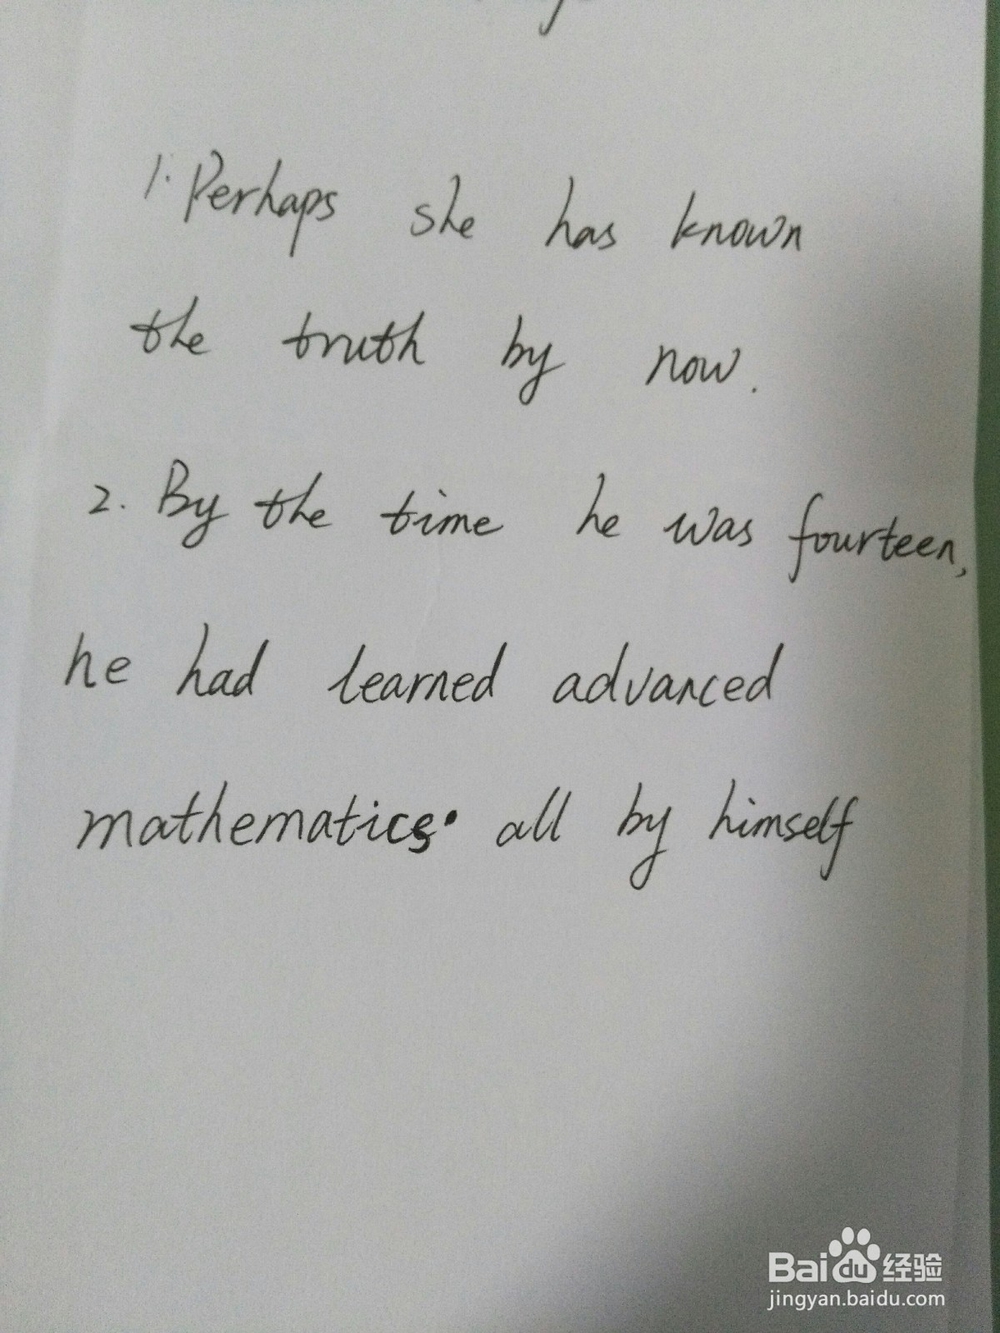 1. Perhaps she has known
the truth by now.
2. By the time he was fourteen,
he had learned advanced
mathematics. all by himself
Baidu 经验
jingyan.baidu.com